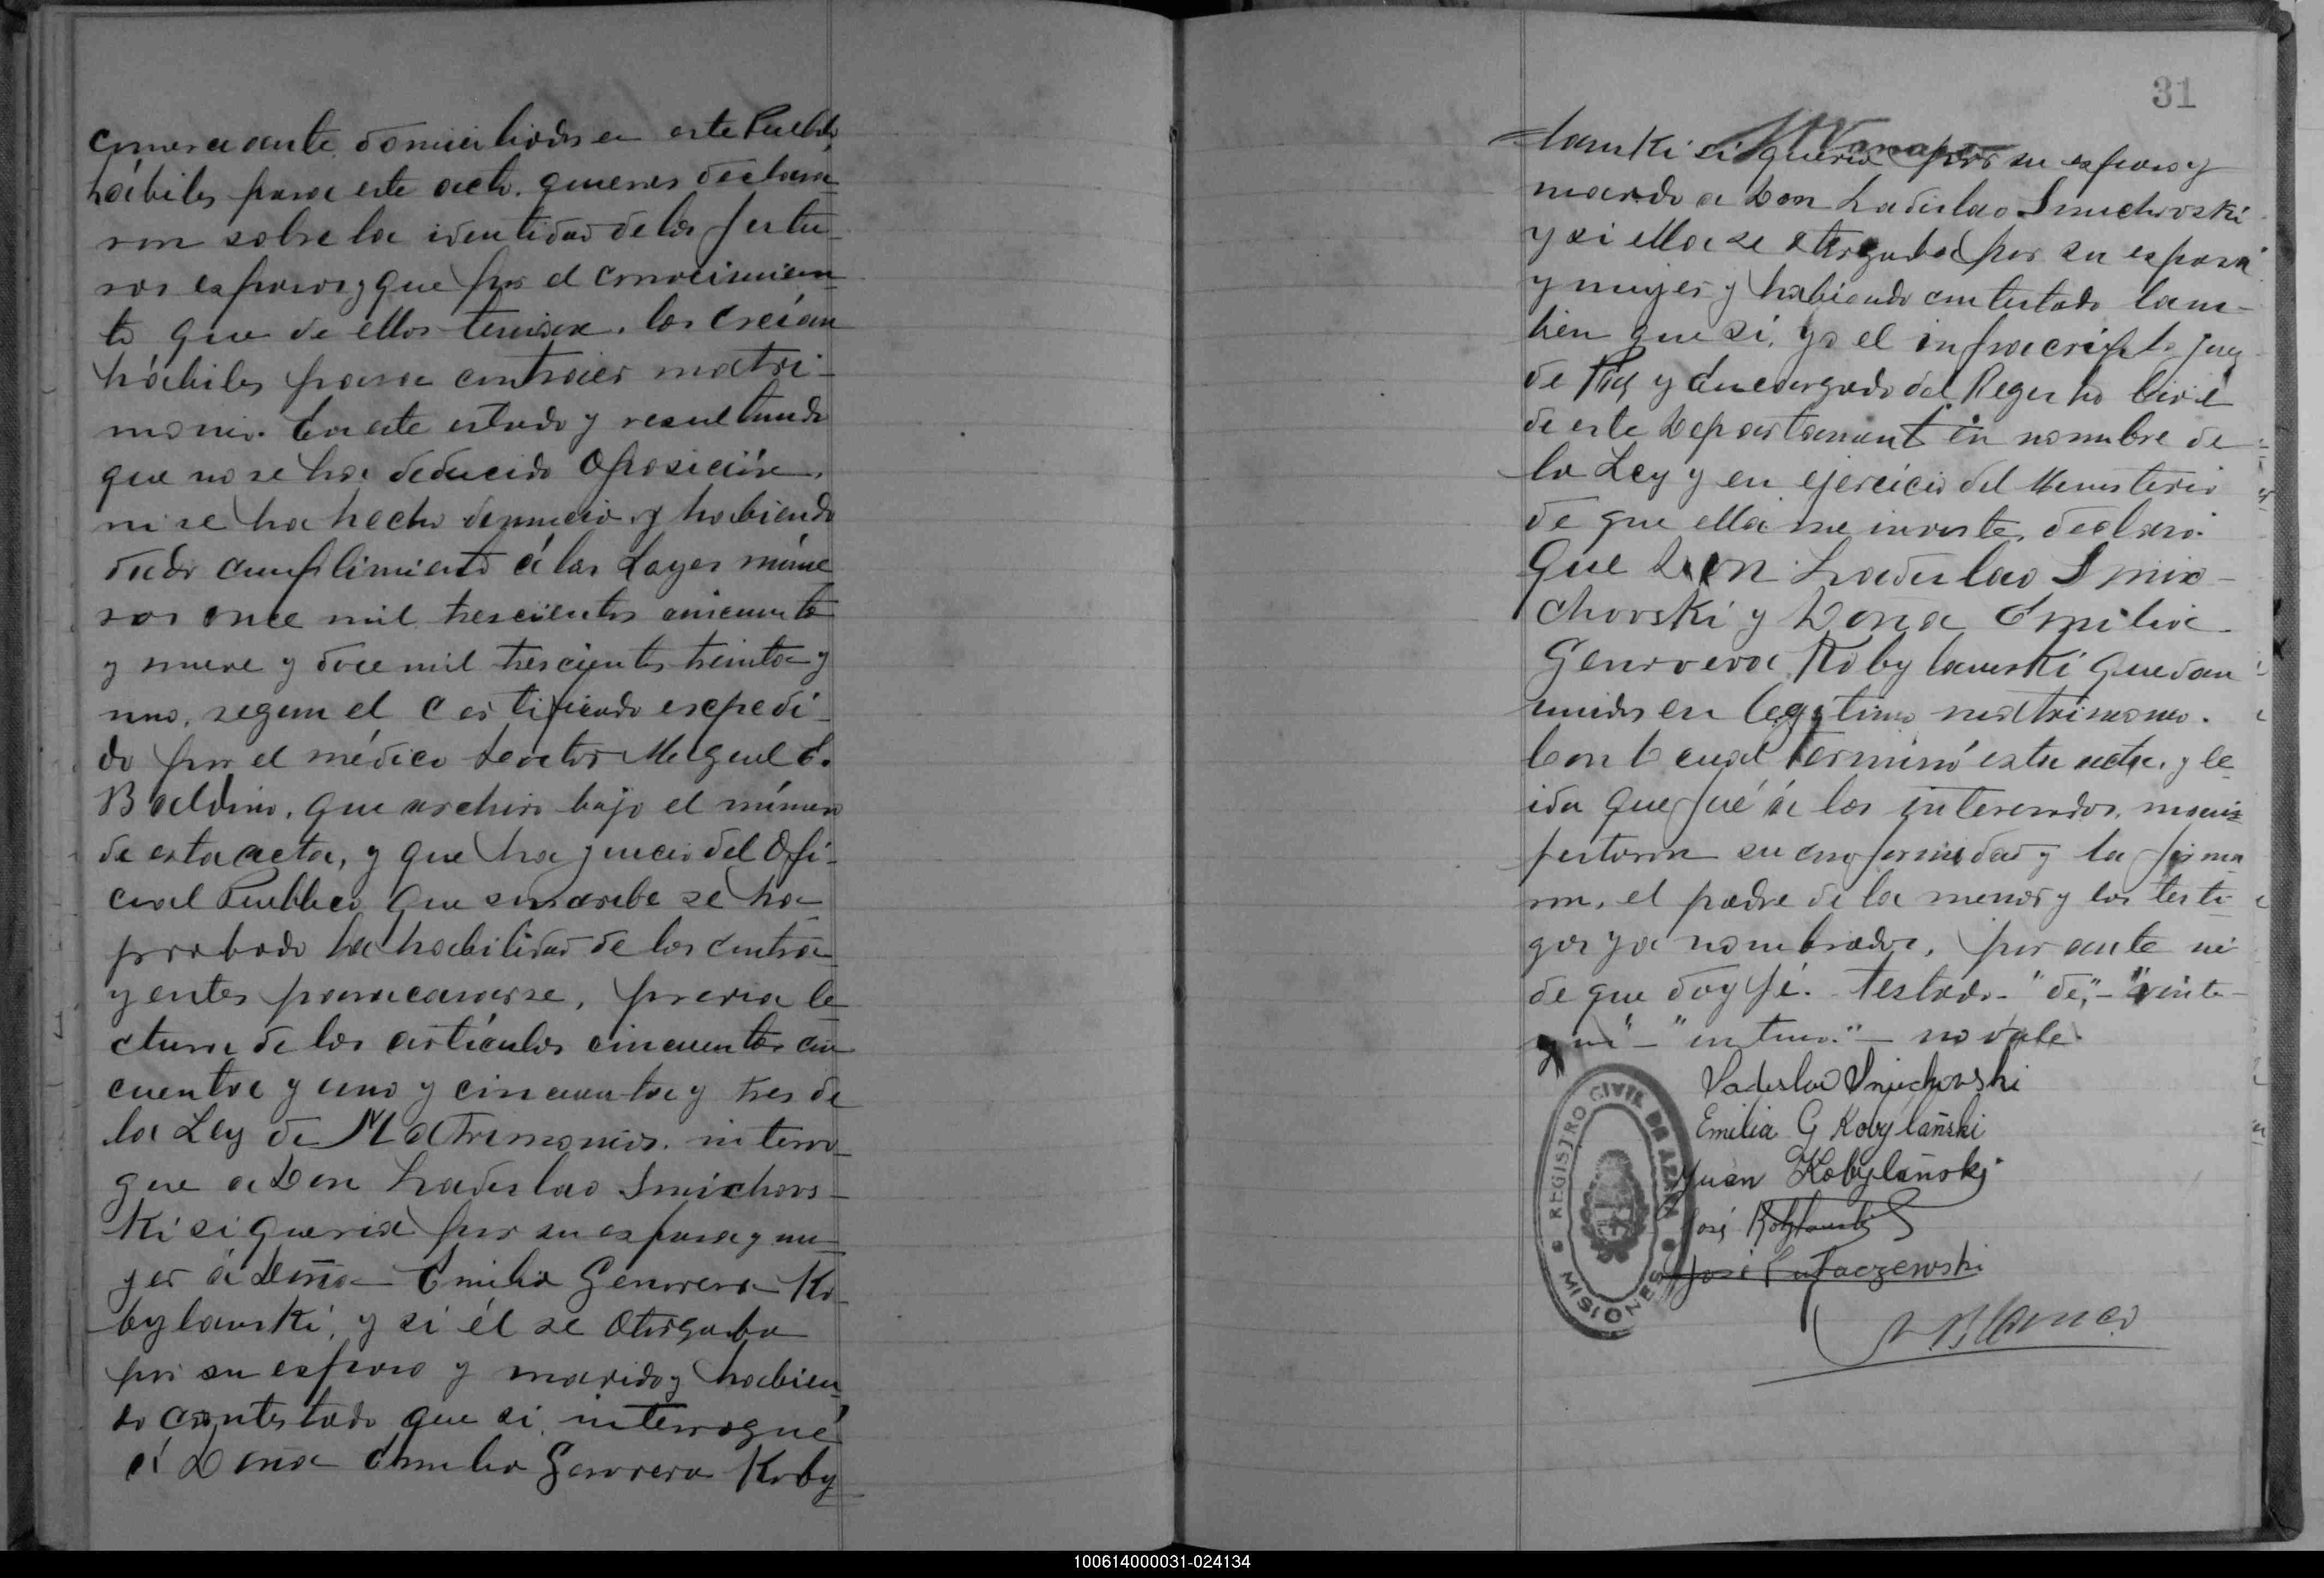 comerciante domiciliados en este Pueblo,
hábiles para este acto. quienes declara-
ron sobre la identidad de los futu-
ros esposos y que por el conocimien-
to que de ellos tenían, los creían
hábiles para contraer matri-
monio. En este estado y resultando
que no se ha deducido oposición,
ni se ha hecho denuncia, y habiendo
dado cumplimiento á las Leyes núme-
ros once mil trescientos cincuenta
y nueve y doce mil trescientos treinta y
uno, segun el Certificado expedi-
do por el médico Doctor Miguel C.
Baldino, que archivo bajo el número
de esta acta, y que ha juicio del Ofi-
cial Publico que suscribe se ha
probado la habilidad de los contra-
yentes para casarse, previa le-
ctura de los artículos cincuenta, cin-
cuenta y uno y cincuenta y tres de
la Ley de Matrimonio. interro-
gue a Don Ladislao Smichows-
ki si queria por su esposa y mu-
jer á Doña Emilia Genoveva Ko-
bylanski, y si él se otorgaba
por su esposo y marido y habien-
do contestado que si, interrogué
á Dona Emilia Genoveva Koby-
31
lanski si queria por su esposo y
marido a Don Ladislao Smichowski
y si ella se otorgaba por su esposa
y mujer y habiendo contestado tam-
bien que si, yo el infracripto Juez
de Paz y Encargado del Registro Civil
de este Departament en nombre de
la Ley y en ejercicio del Ministerio
de que ella me inviste, declaro:
Que Don Ladislao Smi-
chovski y Dona Emilia
Genoveva Kobylanski quedan
unidos en legitimo matrimonio.
Con lo cual terminó esta acta, y le-
ida que fué á los interesados, mani-
festaron su conformidad y la firma-
ron, el padre de la menor y los testi-
gos ya nombrados, por ante mi
de que doy fé. Testado- "de",- "veinte
y un" - - no vale.
Ladislao Smichowski
Emilia G Kobylañski
Juan Kobylañski
José Kobylanski
José
Blanco
REGISTRO CIVIL DE AZARA
MISIONES
100614000031-024134